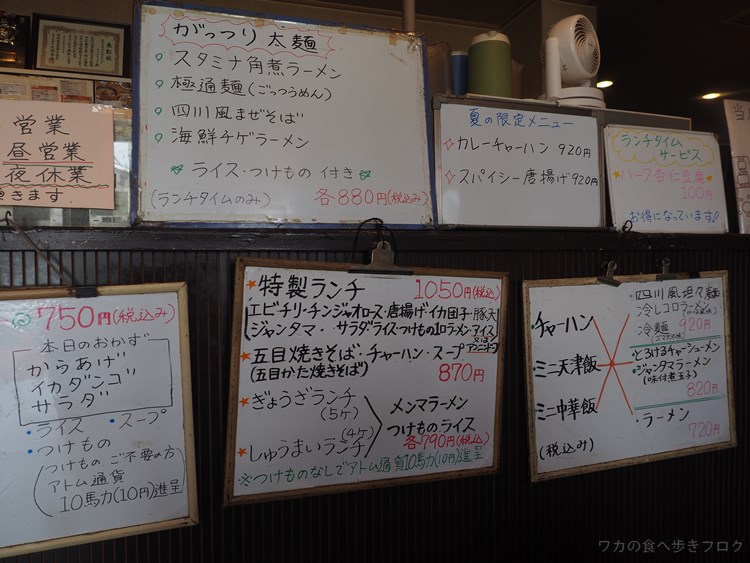 営業
昼営業
夜休業
きます
がっつり太麺
スタミナ角煮ラーメン
極通麺(ごっつうめん)
四川風まぜそば
海鮮チゲラーメン
ライス・つけもの 付き
(ランチタイムのみ) 各880円(税込み)
夏の限定メニュー
☆カレーチャーハン 920円
☆スパイシー唐揚げ920円
ランチタイム
サービス
ハーフ杏仁豆腐
100円
お得になっています!
750円(税込み)
本日のおかず
からあげ
イカダンゴ
サラダ
・ライス ・スープ
・つけもの
(つけもの ご不要の方
アトム通貨
10馬力(10円)進呈
★特製ランチ 1050円(税込)
エビチリ・チンジャオロース・唐揚げ・イカ団子・豚天
ジャンタマ・サラダライスつけもの1/2ラーメン・アイス
又は
アンニンドーフ
★五目焼きそば・チャーハン・スープ
(五目かた焼きそば) 870円
★ぎょうざランチ
(5ケ)
(4ケ)
★しゅうまいランチ
メンマラーメン
つけものライス
各790円(税込)
※つけものなしでアトム通貨10馬力(10円)進呈
・チャーハン
・ミニ天津飯
・ミニ中華飯
(税込み)
・四川風坦々麺
・冷しコロラーメン
・冷麺 920円
(ゴマだれ味)
・とろけるチャーシューメン
・ジャンタマラーメン
(味付煮玉子)
820円
・ラーメン
720円
ワカの食べ歩きブログ